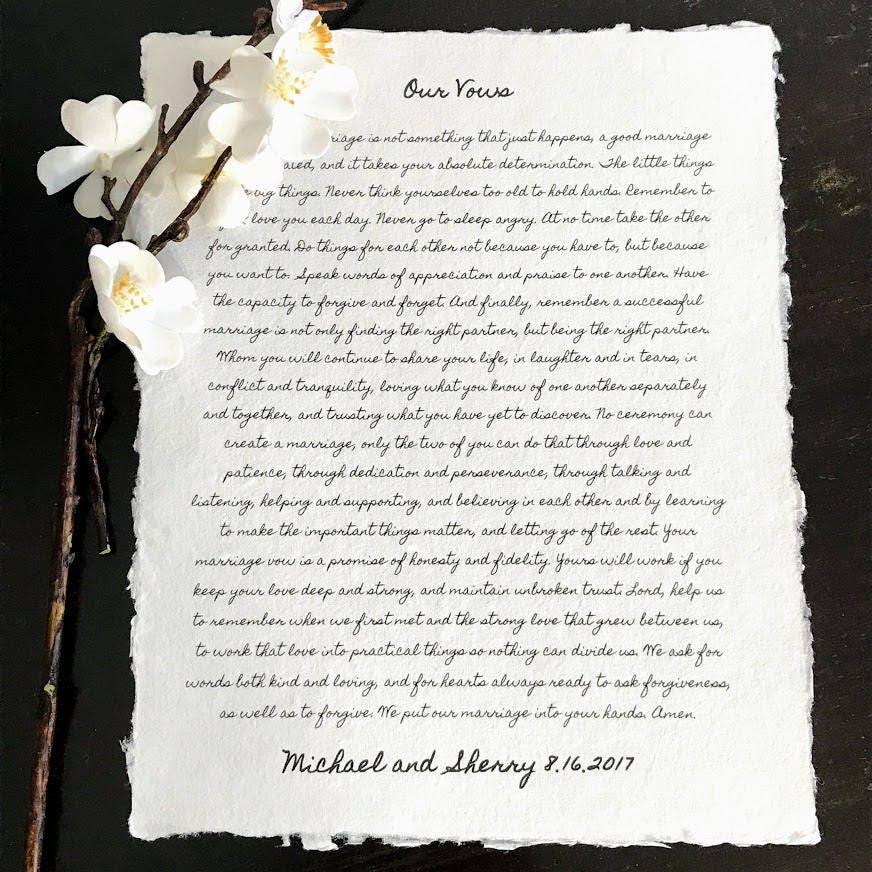 Our Vows
is not something that just happens, a good marriage
and it takes your absolute determination. The little things
big things. Never think yourselves too old to hold hands. Remember to
love you each day. Never go to sleep angry. At no time take the other
for granted. Do things for each other not because you have to, but because
you want to. Speak words of appreciation and praise to one another. Have
the capacity to forgive and forget. And finally, remember a successful
marriage is not only finding the right partner, but being the right partner.
Whom you will continue to share your life, in laughter and in tears, in
conflict and tranquility, loving what you know of one another separately
and together, and trusting what you have yet to discover. No ceremony can
create a marriage, only the two of you can do that through love and
patience, through dedication and perseverance, through talking and
listening, helping and supporting, and believing in each other and by learning
to make the important things matter, and letting go of the rest. Your
marriage vow is a promise of honesty and fidelity. Yours will work if you
keep your love deep and strong, and maintain unbroken trust. Lord, help us
to remember when we first met and the strong love that grew between us,
to work that love into practical things so nothing can divide us. We ask for
words both kind and loving, and for hearts always ready to ask forgiveness,
as well as to forgive. We put our marriage into your hands. Amen.
Michael and Sherry 8.16.2017